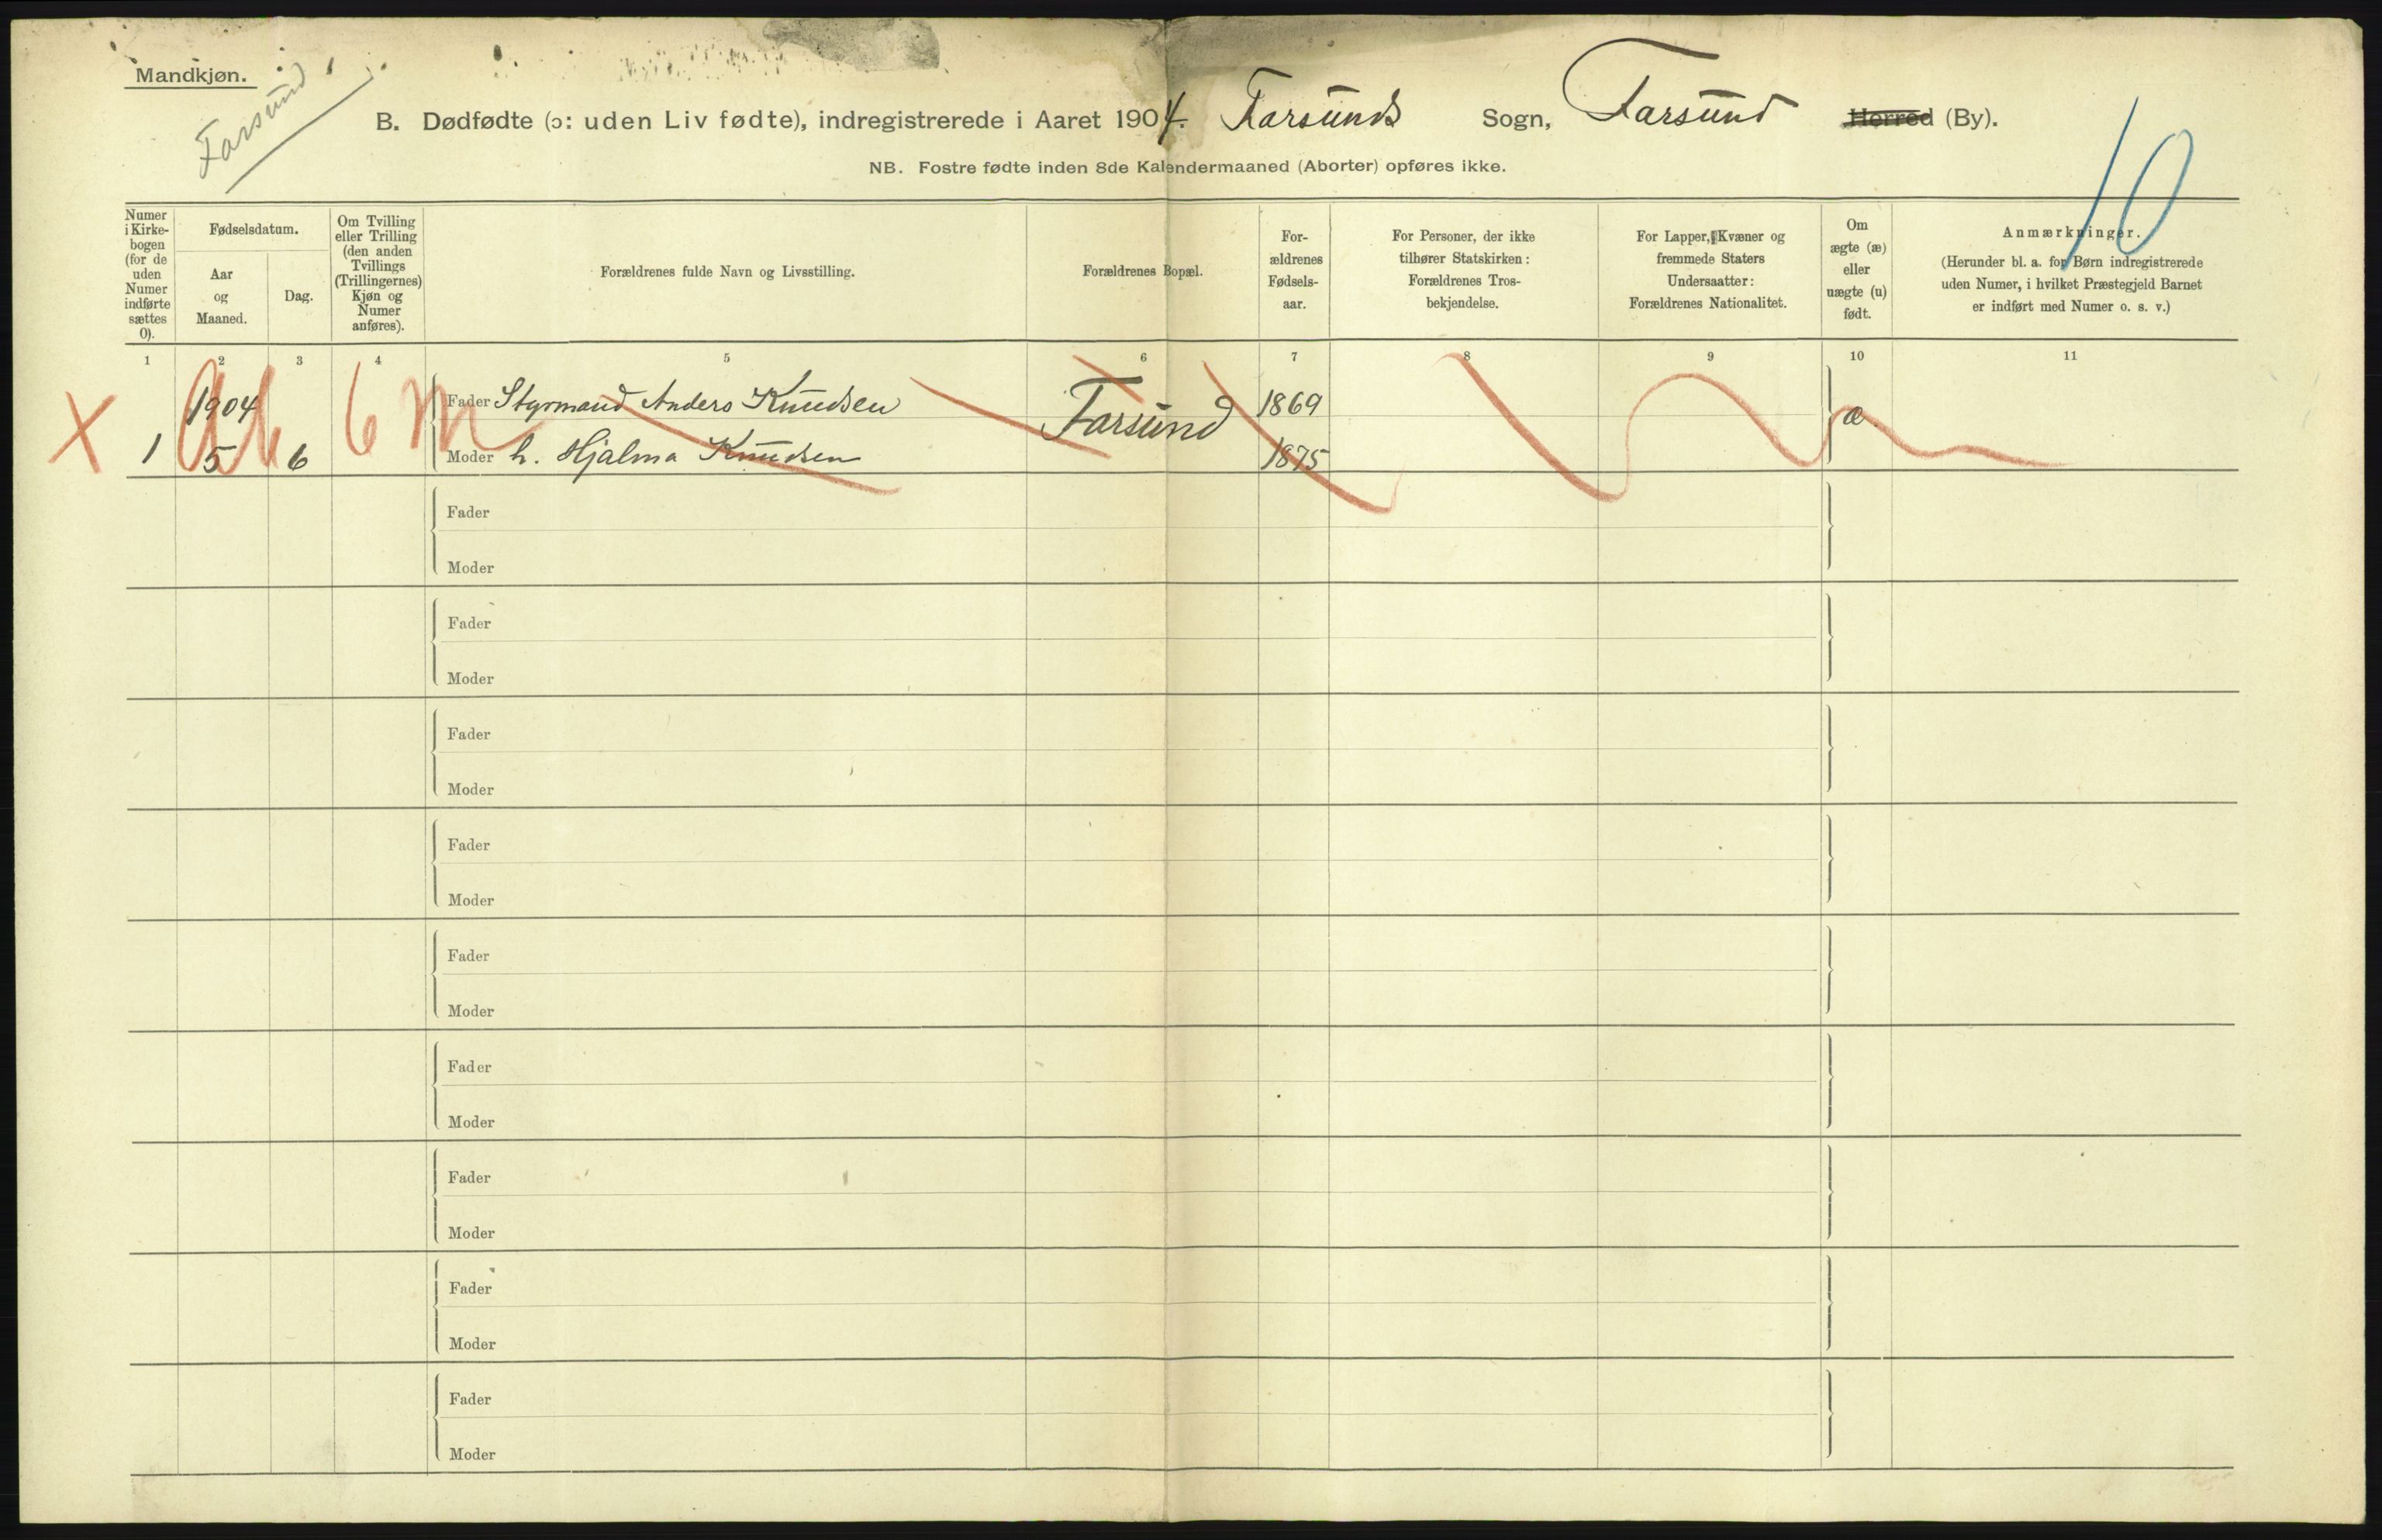 Mandkjøn.
Farsund
B. Dødfødte (ɔ: uden Liv fødte), indregistrerede i Aaret 1904. Farsunds Sogn, Farsund Herred (By).
10
NB. Fostre fødte inden 8de Kalendermaaned (Aborter) opføres ikke.
Numer
i Kirke-
bogen
(for de
uden
Numer
indførte
sættes
0).
Fødselsdatum.
Aar
og
Maaned.
Dag.
Om Tvilling
eller Trilling
(den anden
Tvillings
(Trillingernes)
Kjøn og
Numer
anføres).
Forældrenes fulde Navn og Livsstilling.
Forældrenes Bopæl.
For-
ældrenes
Fødsels-
aar.
For Personer, der ikke
tilhører Statskirken:
Forældrenes Tros-
bekjendelse.
For Lapper, Kvæner og
fremmede Staters
Undersaatter:
Forældrenes Nationalitet.
Om
ægte (æ)
eller
uægte (u)
født.
Anmærkninger.
(Herunder bl. a. for Børn indregistrerede
uden Numer, i hvilket Præstegjeld Barnet
er indført med Numer o. s. v.)
1 2 3 4 5 6 7 8 9 10 11
X 1 1904 5 6 6 m
Fader Styrmand Anders Knudsen Farsund 1869 æ
Moder h. Hjalma Knudsen 1875
Fader
Moder
Fader
Moder
Fader
Moder
Fader
Moder
Fader
Moder
Fader
Moder
Fader
Moder
Fader
Moder
Fader
Moder